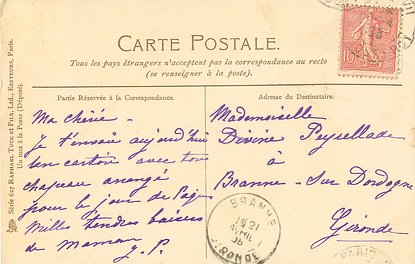 CARTE POSTALE.
Tous les pays étrangers n'acceptent pas la correspondance au recto
(se renseigner à la poste).
Partie Réservée à la Correspondance.
Ma chérie -
Je t'envoie aujourd'hui
ton carton avec ton
chapeau arrangé
pour le jour de Pâques
Milles tendres baisers
de Maman
J. P.
Adresse du Destinataire.
Mademoiselle
Divine Peysellade
à
Branne - Sur Dordogne
Gironde
BRANNE
21
AVRIL
GIRONDE
Série 617 RAPHAEL TUCK ET FILS, LTD., EDITEURS, PARIS.
Un mot à la Poste (Déposé).